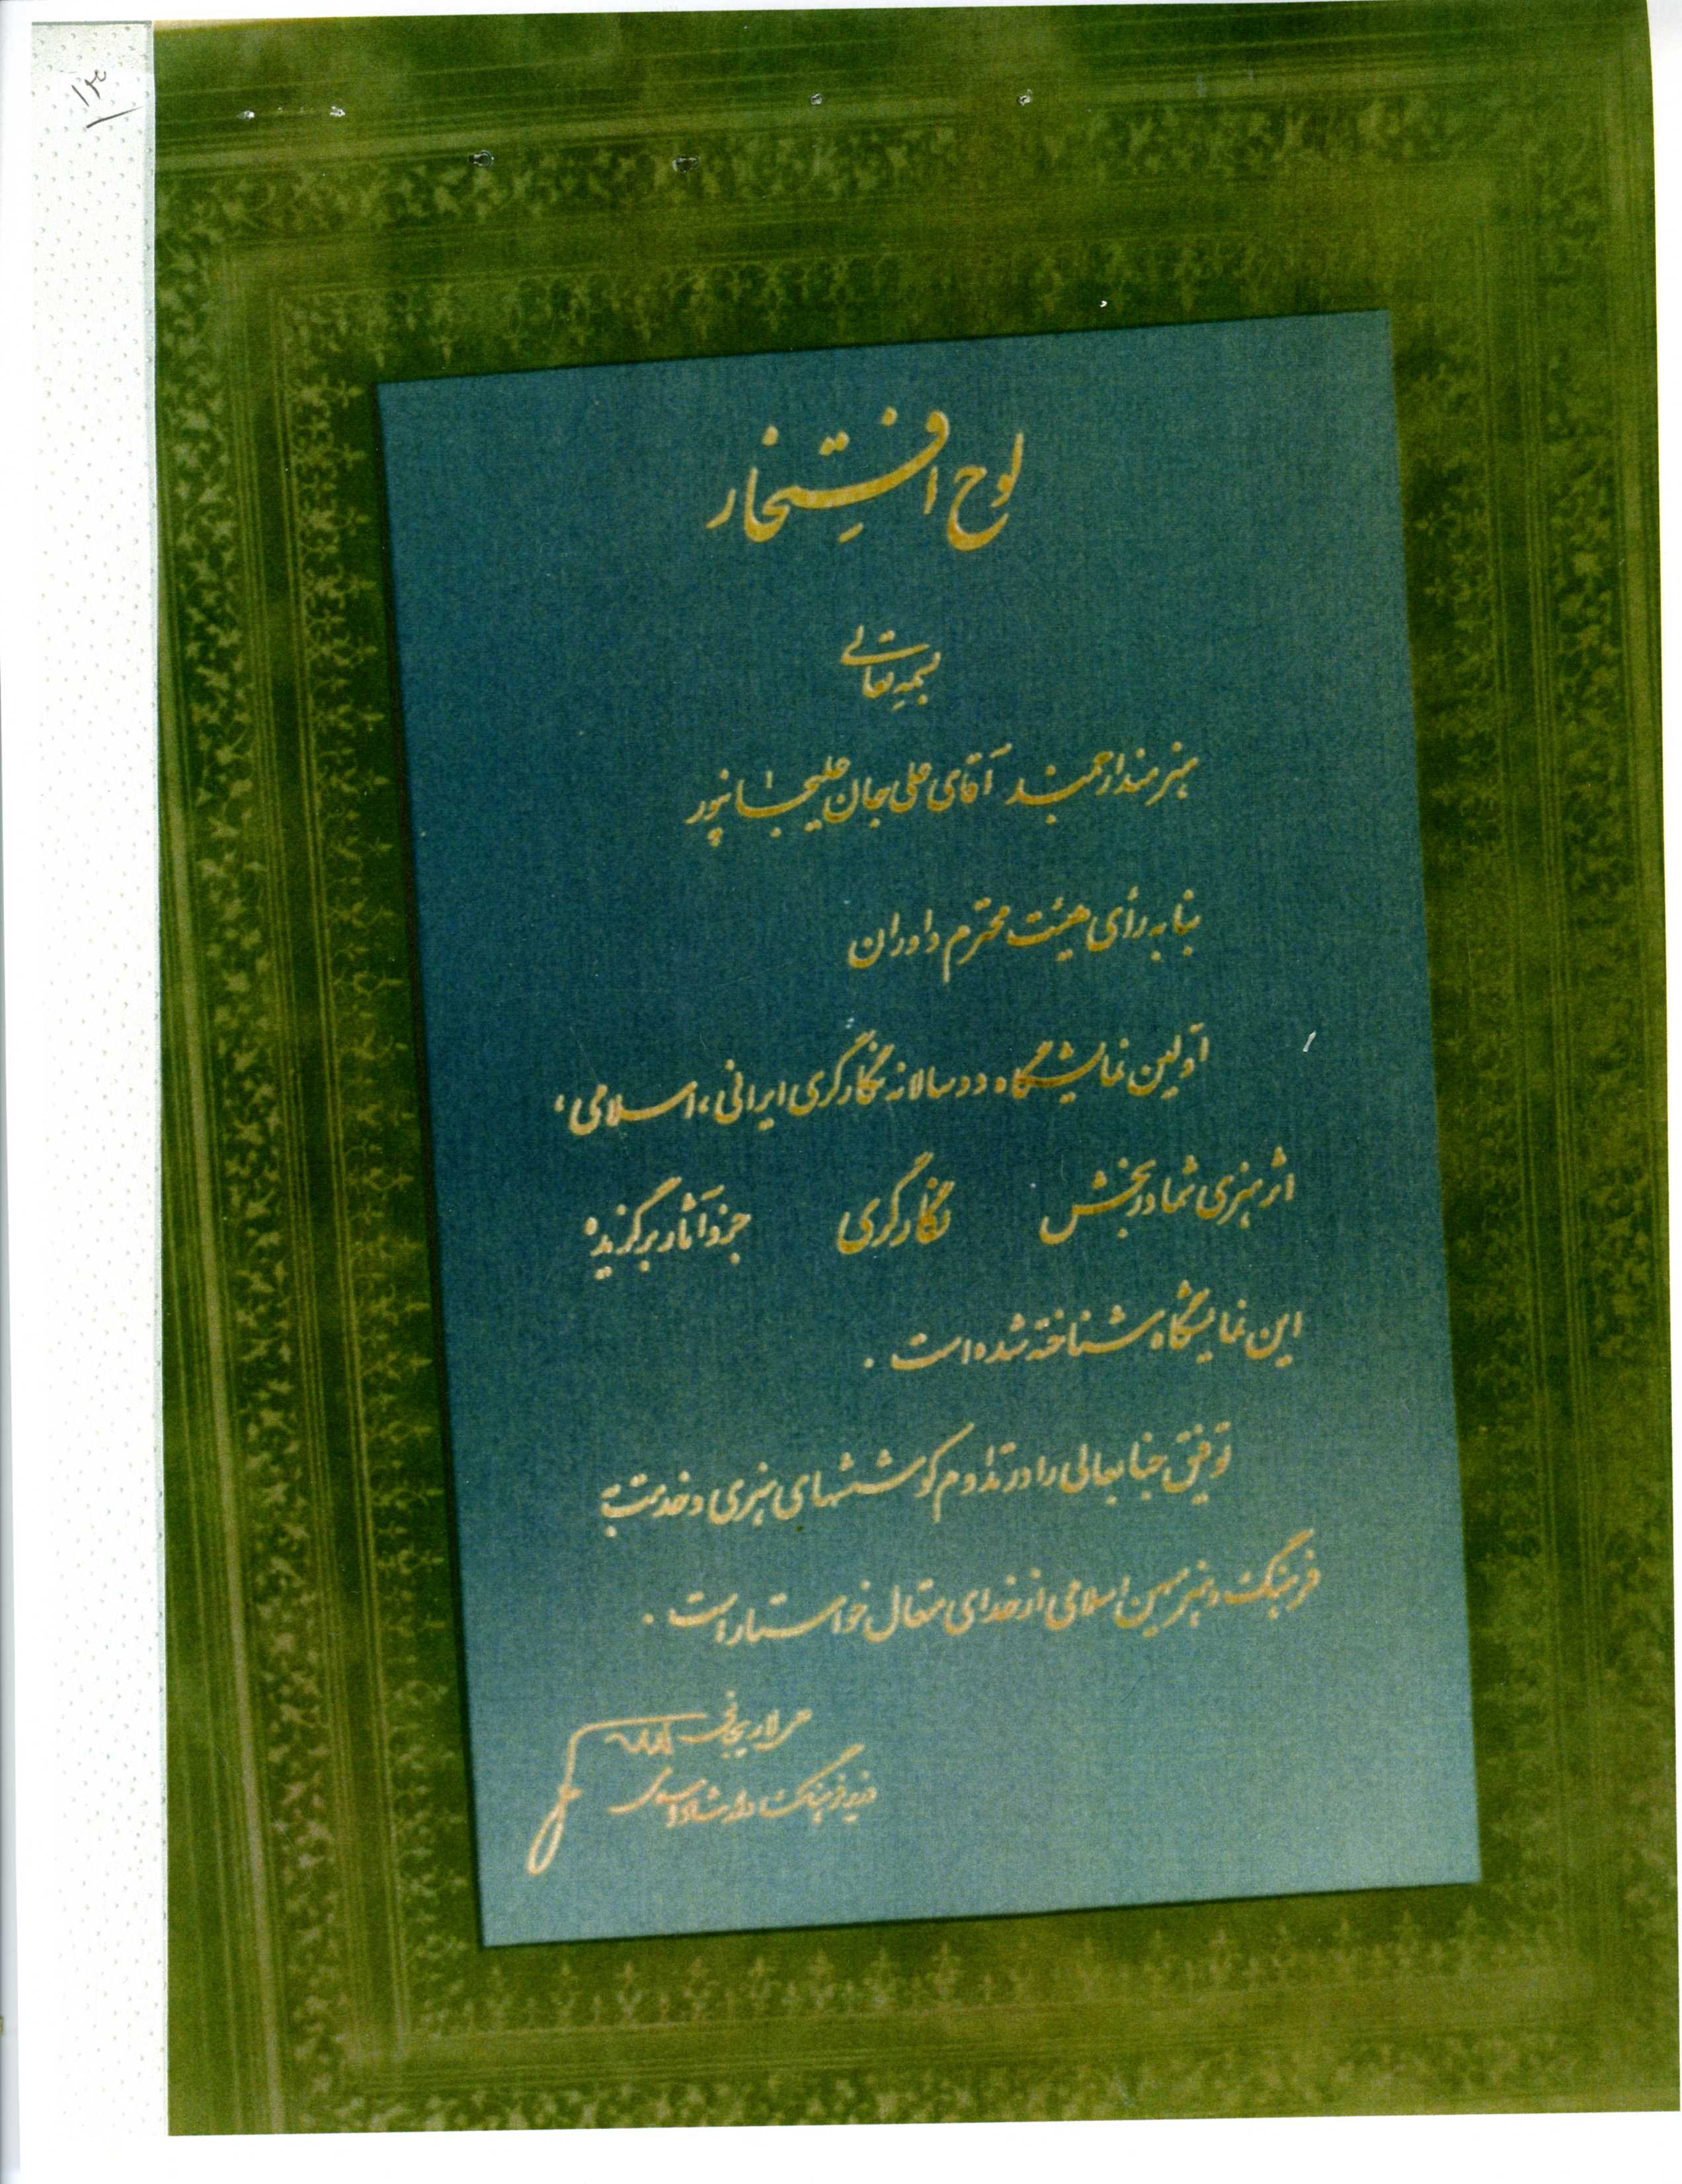 لوح افتخار
بسمه تعالی
هنرمند ارجمند آقای علی جان علیجانپور
بنا به رأی هیئت محترم داوران
اولین نمایشگاه دوسالانه نگارگری ایرانی، اسلامی،
اثر هنری شما در بخش نگارگری جزو آثار برگزیده
این نمایشگاه شناخته شده است.
توفیق جنابعالی را در تداوم کوششهای هنری و خدمت به
فرهنگ و هنر میهن اسلامی از خدای متعال خواستار است.
لاریجانی
وزیر فرهنگ و ارشاد اسلامی